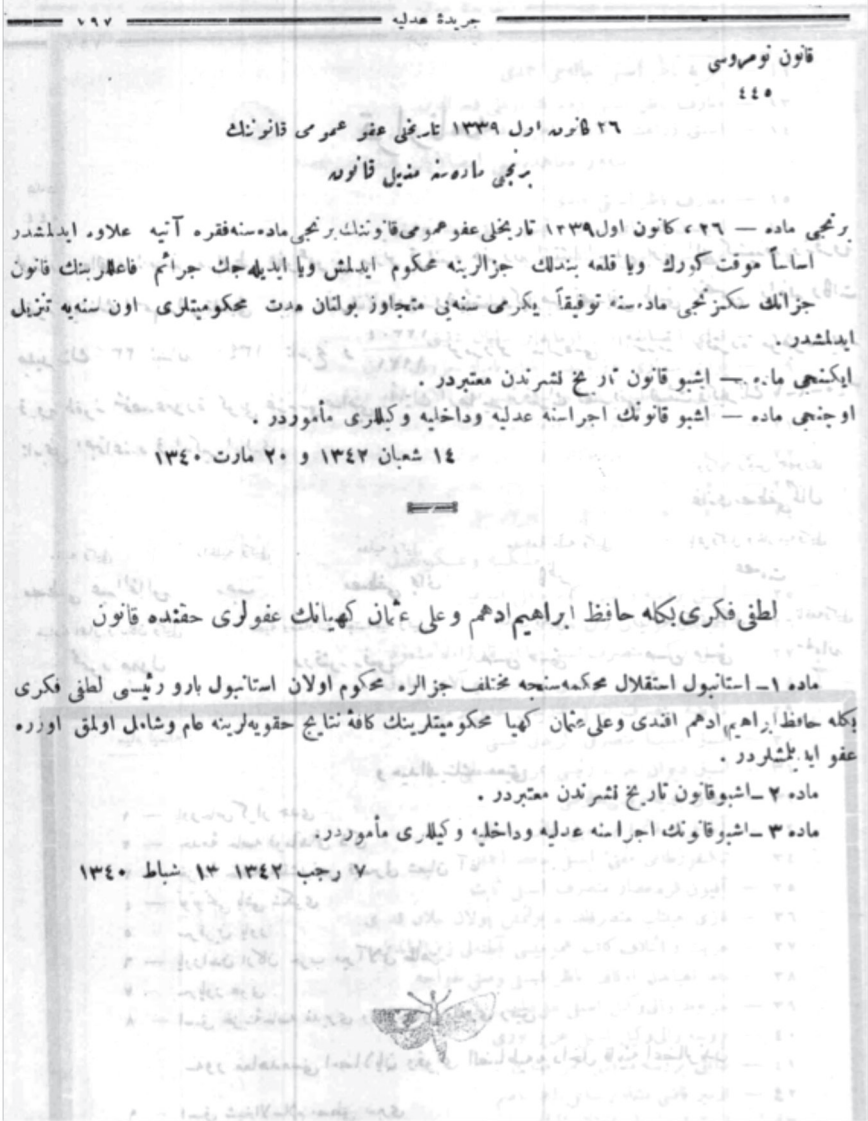 جريدۀ عدليه
٧٩٧
قانون نومروسى
٤٤٥
٢٦ كانون اول ١٣٣٩ تاريخلى عفو عمومى قانوننك
برنجى ماده سنه مذيل قانون
برنجى ماده — ٢٦، كانون اول ١٣٣٩ تاريخلى عفو عمومى قانوننك برنجى ماده سنه فقره آتيه علاوه ايدلمشدر
اساساً موقت كورك ويا قلعه بندلك جزالرينه محكوم ايدلمش ويا ايديله جك جرائم فاعللرينك قانون
جزانك سكزنجى ماده سنه توفيقاً يكرمى سنه يى متجاوز بولنان مدت محكوميتلرى اون سنه يه تنزيل
ايدلمشدر.
ايكنجى ماده — اشبو قانون تاريخ نشرندن معتبردر.
اوچنجى ماده — اشبو قانونك اجراسنه عدليه وداخليه وكيللرى مأموردر.
١٤ شعبان ١٣٤٢ و ٢٠ مارت ١٣٤٠
لطفى فكرى بكله حافظ ابراهيم ادهم وعلى عثمان كهيانك عفولرى حقنده قانون
ماده ١ــ استانبول استقلال محكمه سنجه مختلف جزالره محكوم اولان استانبول بارو رئيسى لطفى فكرى
بكله حافظ ابراهيم ادهم افندى وعلى عثمان كهيا محكوميتلرينك كافۀ نتايج حقوقيه لرينه عام وشامل اولمق اوزره
عفو ايديلمشلردر.
ماده ٢ــ اشبوقانون تاريخ نشرندن معتبردر.
ماده ٣ــ اشبوقانونك اجراسنه عدليه وداخليه وكيللرى مأموردر.
٧ رجب ١٣٤٢ ١٣ شباط ١٣٤٠